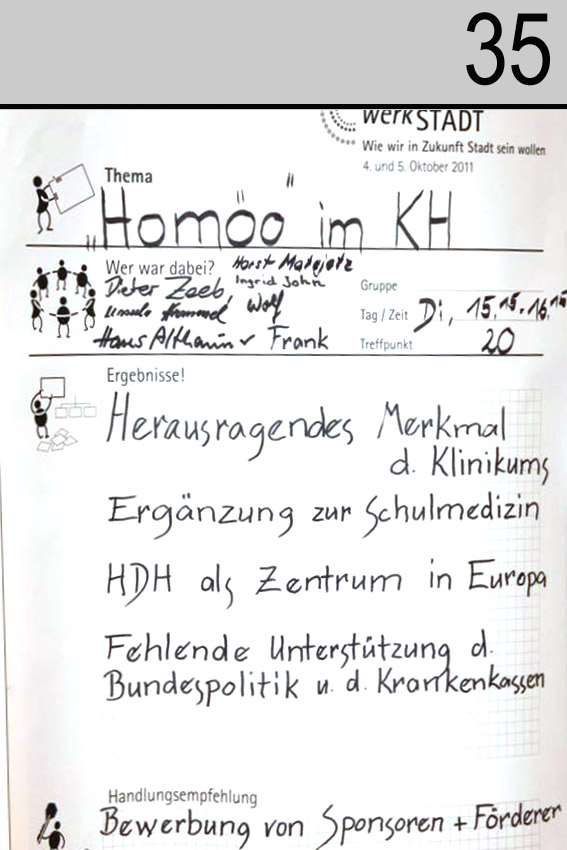 35
WerkSTADT
Wie wir in Zukunft Stadt sein wollen
4. und 5. Oktober 2011
Thema
„Homöo“ im KH
Wer war dabei? Horst Matejetz
Dieter Zeeb, Ingrid John
Wolf
Hans Althann Frank
Gruppe
Tag / Zeit Di, 15.15-16.15
Treffpunkt 20
Ergebnisse!
Herausragendes Merkmal
d. Klinikums
Ergänzung zur Schulmedizin
HDH als Zentrum in Europa
Fehlende Unterstützung d.
Bundespolitik u. d. Krankenkassen
Handlungsempfehlung
Bewerbung von Sponsoren + Förderer